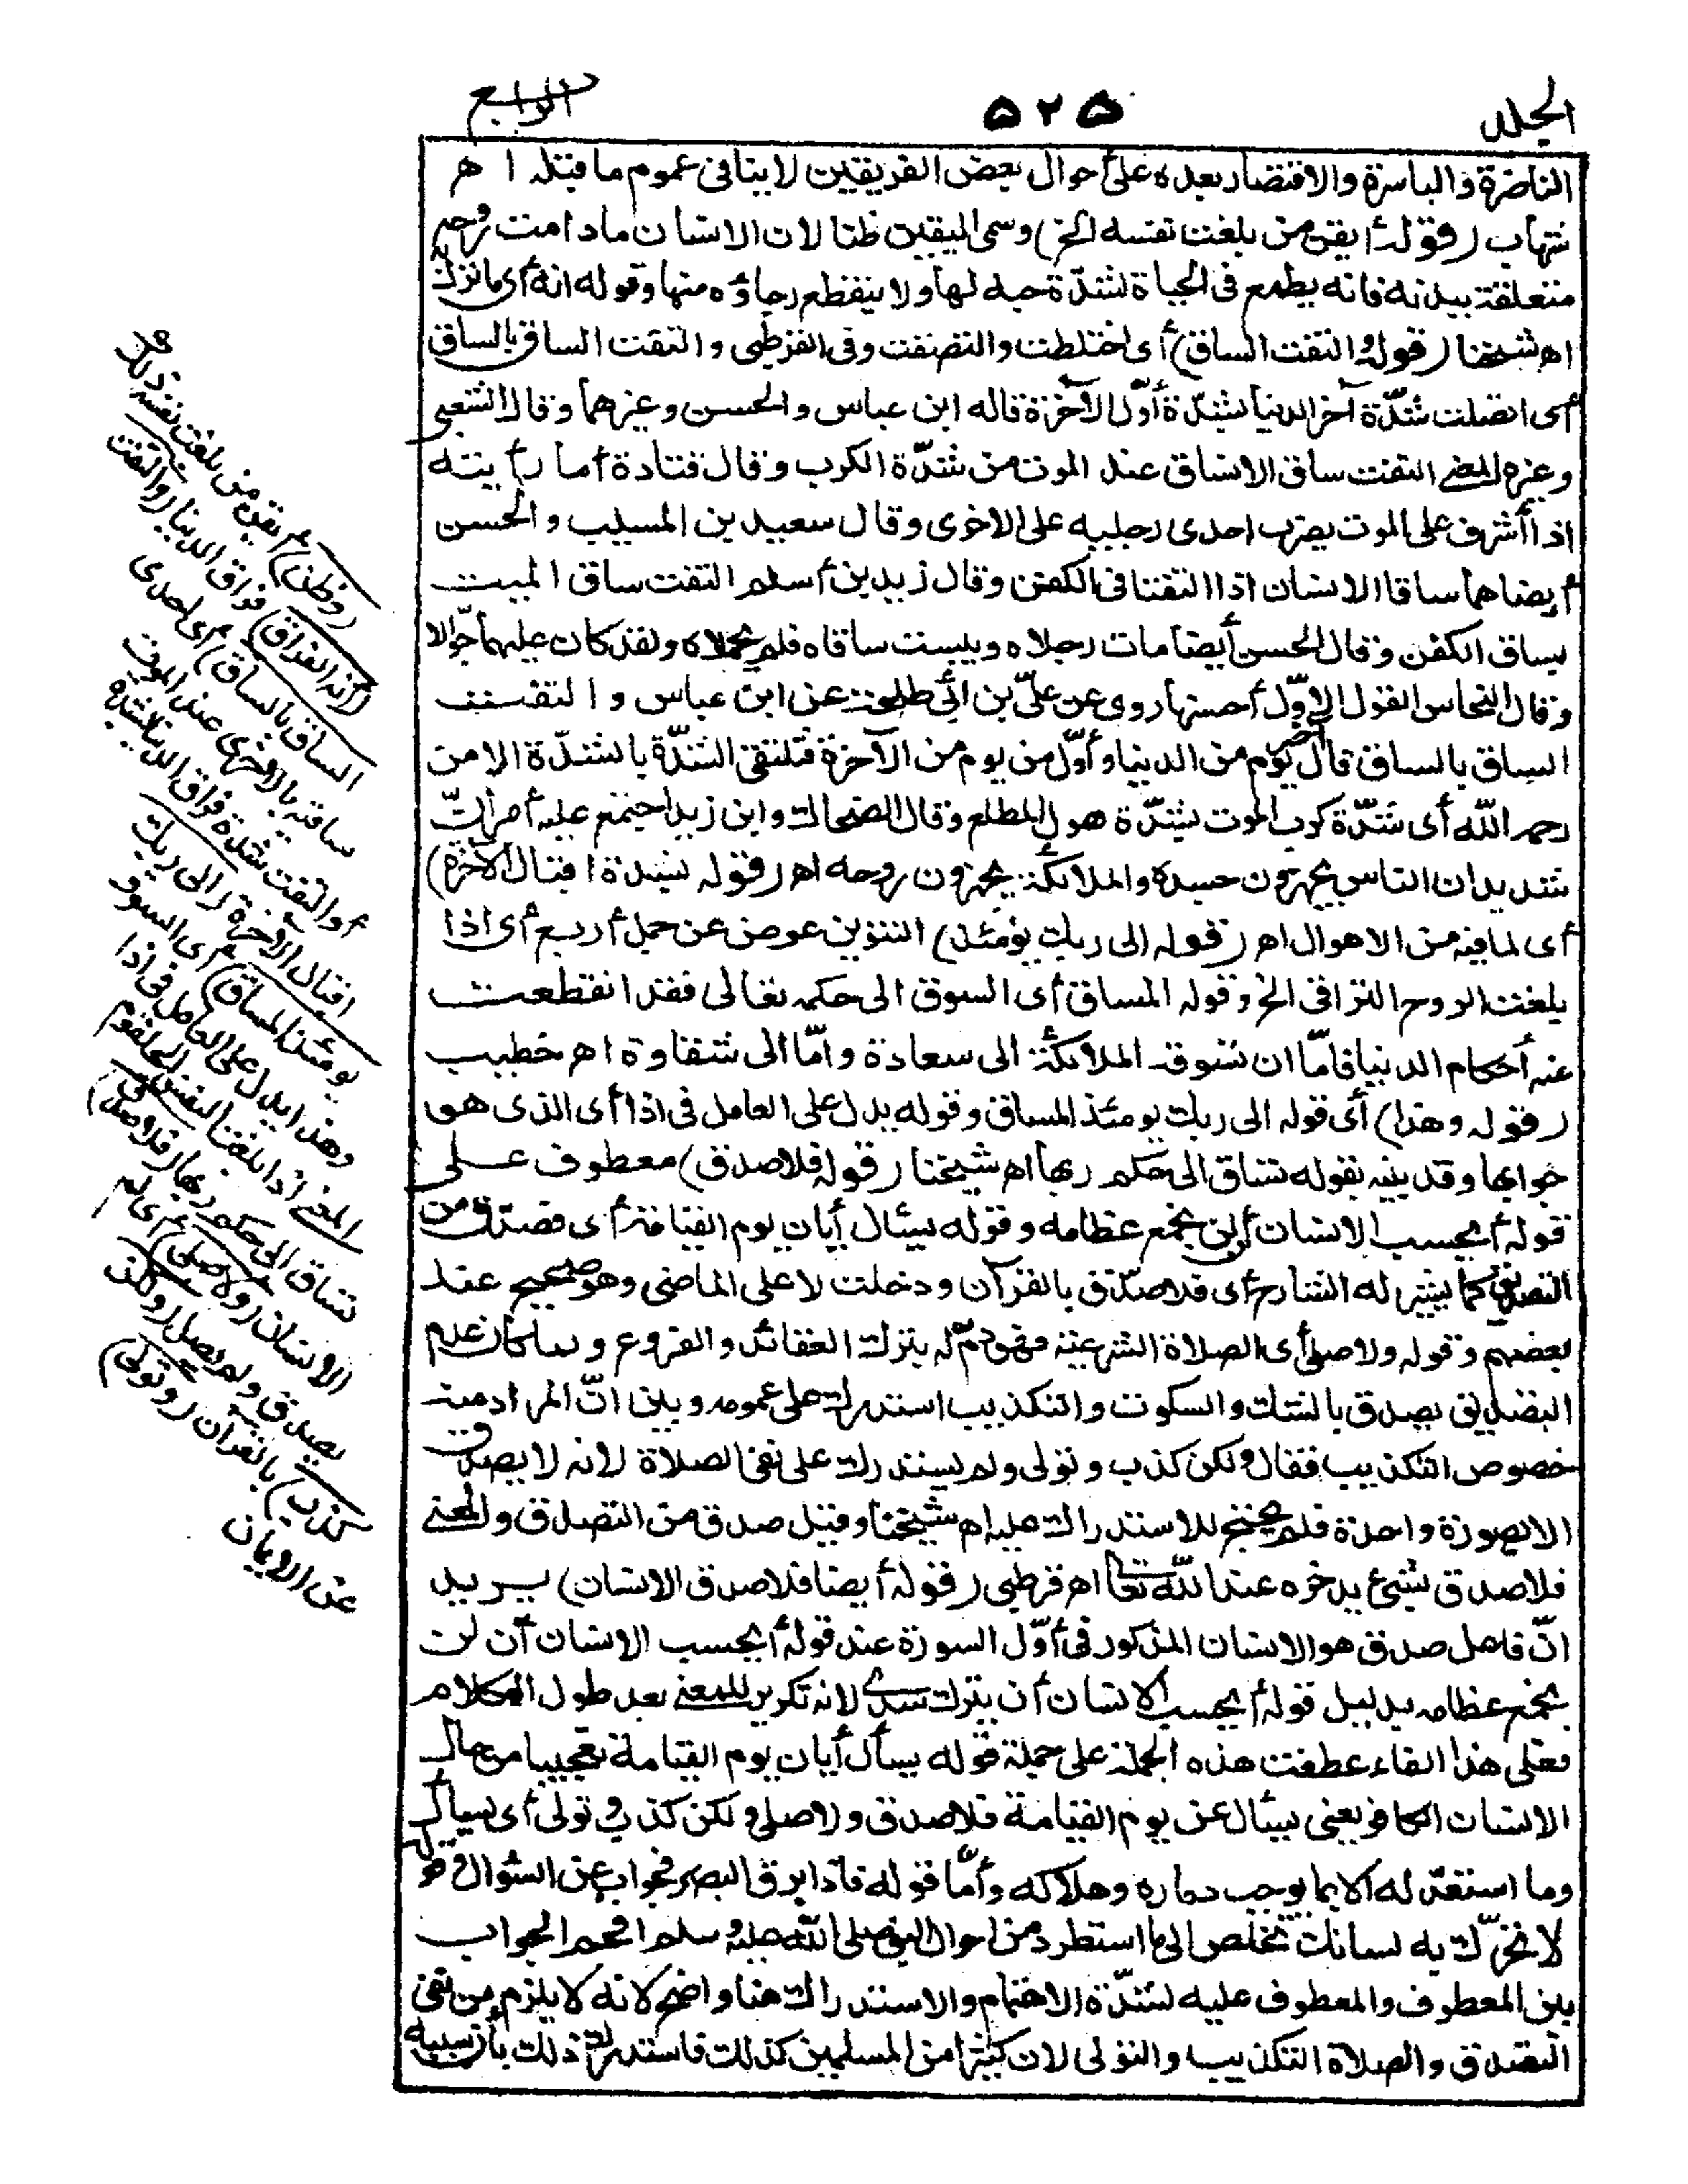 الجلد
٥٢٥
الرابع
الناضرة والباسرة والاقتصار بعده على أحوال بعض الفريقين لا ينافى عموم ما قبله ا هـ
شهاب (قوله أيقن من بلغت نفسه الخ) وسمى اليقين ظنا لان الانسان مادامت روحه
متعلقة ببدنه فانه يطمع فى الحياة لشدّة حبه لها ولا ينقطع رجاؤه منها وقوله انه أى ما نزل به
اهـ شيخنا (قوله والتفت الساق) أى اختلطت والتصقت وفى القرطبى والتفت الساق بالساق
أى اتصلت شدّة آخر الدنيا بشدّة أوّل الآخرة قاله ابن عباس والحسن وغيرهما وقال الشعبى
وغيره المعنى التفت ساق الانسان عند الموت من شدّة الكرب وقال قتادة أما رأيته
اذا أشرف على الموت يضرب احدى رجليه على الاخرى وقال سعيد بن المسيب والحسن
أيضا هما ساقا الانسان اذا التفتا فى الكفن وقال زيد بن أسلم التفت ساق الميت
بساق الكفن وقال الحسن أيضا مات رجلاه ويبست ساقاه فلم يحملاه ولقد كان عليهما جوّالا
وقال النحاس القول الاوّل أحسنها روى عن علىّ بن أبى طلحة عن ابن عباس والتفت
الساق بالساق قال آخر يوم من الدنيا وأوّل من يوم من الآخرة فتلتقى الشدّة بالشدّة الا من
رحمه الله أى شدّة كرب الموت بشدّة هول المطلع وقال الضحاك وابن زيد اجتمع عليه أمران
شديدان الناس يجهزون جسده والملائكة يجهزون روحه اهـ (قوله بشدة اقبال الآخرة)
أى لما فيه من الاهوال اهـ (قوله الى ربك يومئذ) التنوين عوض عن جمل أربع أى اذا
بلغت الروح التراقى الخ وقوله المساق أى السوق الى حكمه تعالى فقد انقطعت
عنه أحكام الدنيا فامّا ان تسوقه الملائكة الى سعادة وامّا الى شقاوة اهـ خطيب
(قوله وهذا) أى قوله الى ربك يومئذ المساق وقوله يدل على العامل فى اذا أى الذى هو
جوابها وقد بينه بقوله تساق الى حكم ربها اهـ شيخنا (قوله فلا صدق) معطوف على
قوله أيحسب الانسان ألن نجمع عظامه وقوله يسئال أيان يوم القيامة أى فصدّق من
التصديق كما يشير له الشارح أى فلا صدّق بالقرآن ودخلت لا على الماضى وهو صحيح عند
بعضهم وقوله ولا صلى أى الصلاة الشرعية فهو ذمّ له بترك العقائد والفروع ولما كان عدم
التصديق يصدق بالشك والسكوت والتكذيب استدرك على عمومه وبين انّ المراد منه
خصوص التكذيب فقال ولكن كذب وتولى ولم يستدرك على نفى الصلاة لانه لا يصدق
الا بصورة واحدة فلم يحتج للاستدراك عليه اهـ شيخنا وقيل صدق من التصدق والمعنى
فلا صدق بشئ يدخره عند الله تعالى اهـ قرطبى (قوله أيضا فلا صدق الانسان) يريد
انّ فاعل صدق هو الانسان المذكور فى أوّل السورة عند قوله أيحسب الانسان أن لن
نجمع عظامه بدليل قوله أيحسب الانسان أن يترك سدى لانه تكرير للمعنى بعد طول الكلام
فعلى هذا الفاء عطفت هذه الجملة على جملة قوله يسأل أيان يوم القيامة تعجيبا من حال
الانسان الكافر يعنى يسئال عن يوم القيامة فلا صدق ولا صلى ولكن كذب وتولى أى يسأل
وما استعدّ له الا بما يوجب دماره وهلاكه وأمّا قوله فاذا برق البصر فجواب عن السؤال وقوله
لا تحرّك به لسانك تخلص الى ما استطرد من احوال النبى صلى الله عليه وسلم اقحم الجواب
بين المعطوف والمعطوف عليه لشدّة الاهتمام والاستدراك هنا واضح لانه لا يلزم من نفى
التصدق والصلاة التكذيب والتولى لان كثيرا من المسلمين كذلك فاستدرك ذلك بأن سببه
(وظن) أيقن من بلغت نفسه ذلك
(أنه الفراق) فراق الدنيا (والتفت
الساق بالساق) أى احدى
ساقيه بالاخرى عند الموت
أو التفت شدة فراق الدنيا بشدة
اقبال الآخرة (الى ربك
يومئذ المساق) أى السوق
وهذا يدل على العامل فى اذا
المعنى اذا بلغت النفس الحلقوم
تساق الى حكم ربها (فلا صدق)
الانسان (ولا صلى) أى لم
يصدق ولم يصل (ولكن
كذب) بالقرآن (وتولى)
عن الايمان